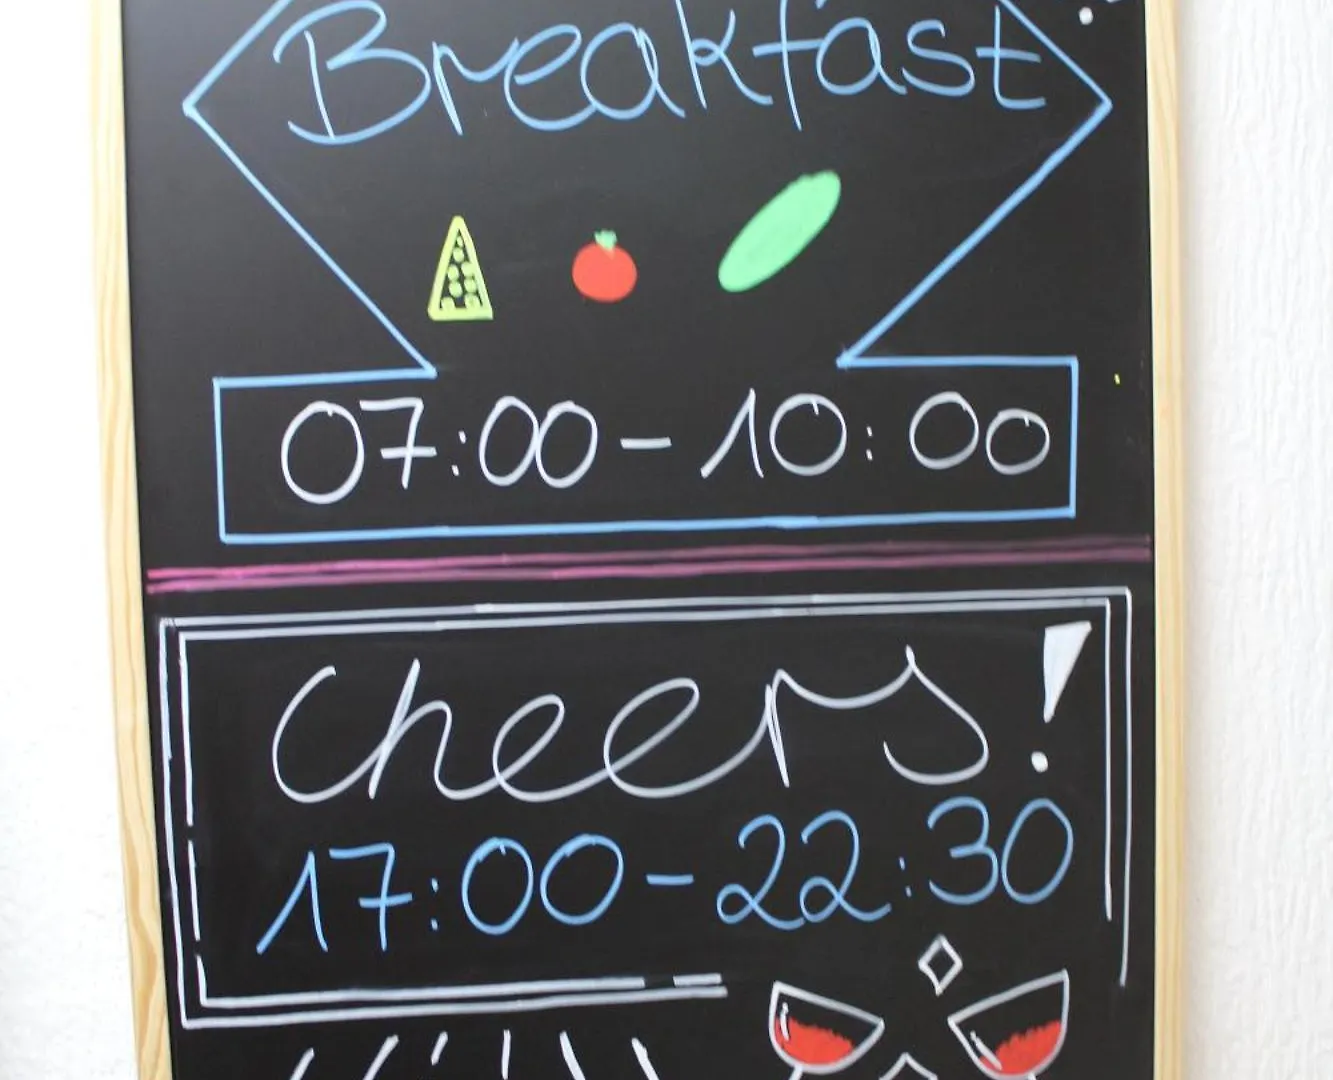 Breakfast
07:00 - 10:00
Cheers!
17:00 - 22:30